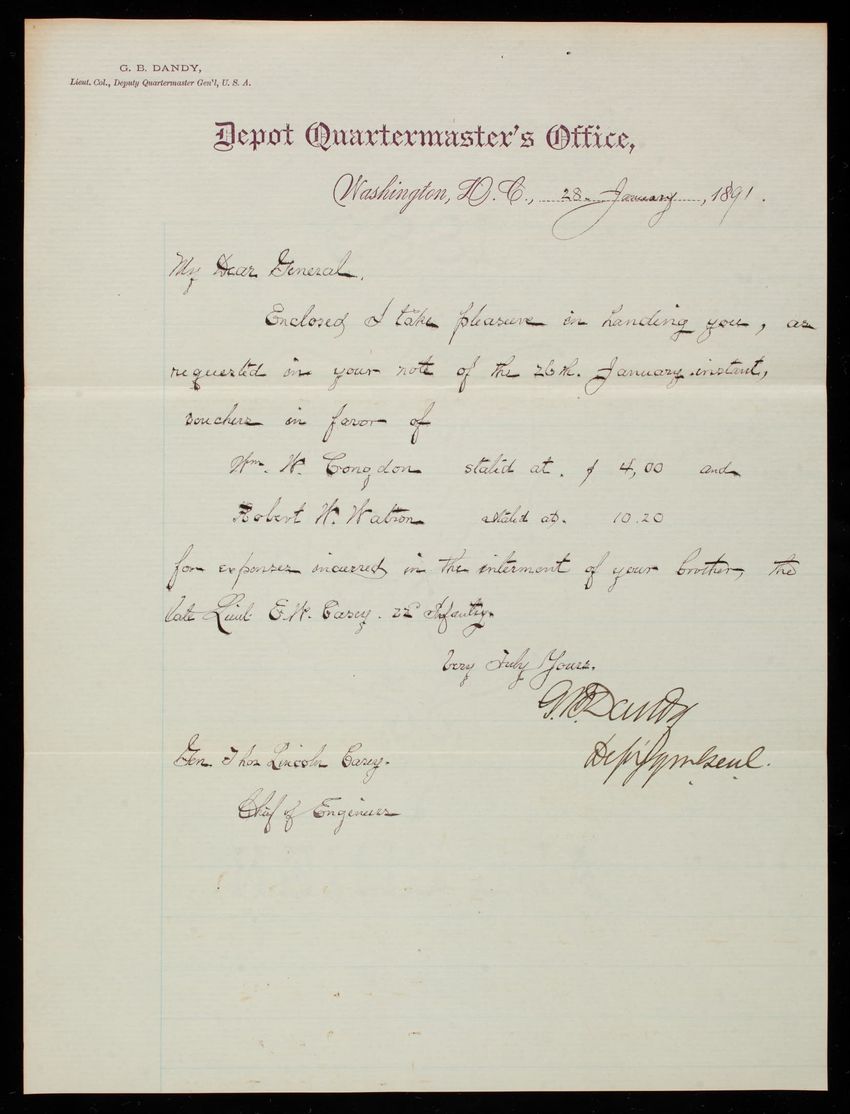 G. B. DANDY,
Lieut. Col., Deputy Quartermaster Gen'l, U. S. A.
Depot Quartermaster's Office,
Washington, D. C., 28 January, 1891.
My Dear General,
Enclosed I take pleasure in handing you, as
requested in your note of the 26th. January instant,
vouchers in favor of
Wm. W. Congdon stated at. $ 4,00 and
Robert W. Watson stated at. 10.20
for expenses incurred in the interment of your brother, the
late Lieut E. W. Casey. 22d Infantry.
Very Truly Yours.
G. B. Dandy
Gen. Thos Lincoln Casey.
Chief of Engineers